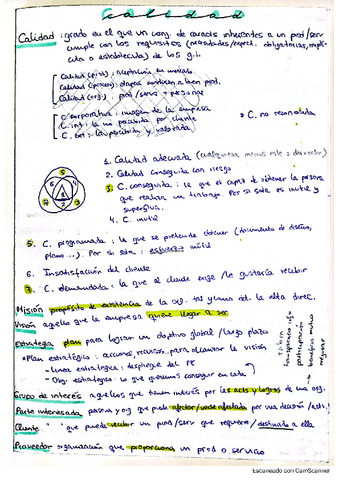 calidad
Calidad: grado en el que un conj. de caracts inherentes a un prod/serv
cumple con los requisitos (necesidades/expect. obligatorias, implíc
ita o establecida) de los g.i.
Calidad (prod.): aceptación en mercado
Calidad (proceso):
Calidad (org.): prod/servs + personas
C. corporativa: imagen de la empresa
C. int: la no percibida por cliente
C. ext: la percibida y valorada
C. no reconocida
5
1
2 3
4
6 7
1. Calidad adecuada
2. Calidad conseguida con riesgo
3. C. conseguida: lo que es capaz de obtener la persona
que realiza un trabajo. Por sí sola es inútil y
superflua.
4. C. inútil
5. C. programada: la que se pretende obtener (documento de diseño,
plano...). Por sí sola: esfuerzo inútil
6. Insatisfacción del cliente
7. C. demandada: la que el cliente exige/le gustaría recibir
Misión propósito de existencia de la org. tal y como def. la alta direc.
Visión aquello que la empresa quiere llegar a ser
Estrategia plan para lograr un objetivo global/largo plazo
*Plan estratégico: acciones, recursos.. para alcanzar la visión
- Línea estratégica: despliegue del PE
- Obj. estratégico: lo que queremos conseguir en cada
transparencia
participación
beneficio mutuo
Grupo de interés aquellos que tienen interés por los acts y logros de una org.
Parte interesada persona y org que puede afectar/verse afectada por una decisión/act.
Cliente " " que puede recibir un prod/serv que requiera/destinado a ella
Proveedor organización que proporciona un prod o servicio
Escaneado con CamScanner